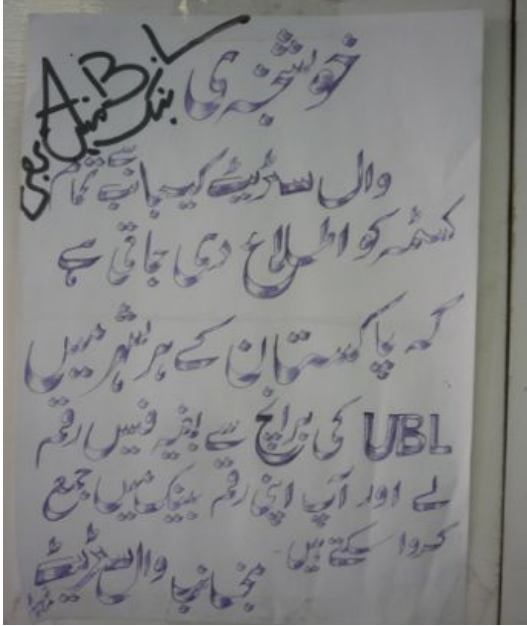 A.B.L
بنک میں بھی
خوشخبری
وال سٹریٹ کیجانب سے تمام
کسٹمر کو اطلاع دی جاتی ہے
کہ پاکستان کے ہر شہر میں
UBL کی برانچ سے بغیر فیس رقم
لے اور آپ اپنی رقم بینک میں جمع
کروا سکتے ہیں
منجانب وال سٹریٹ